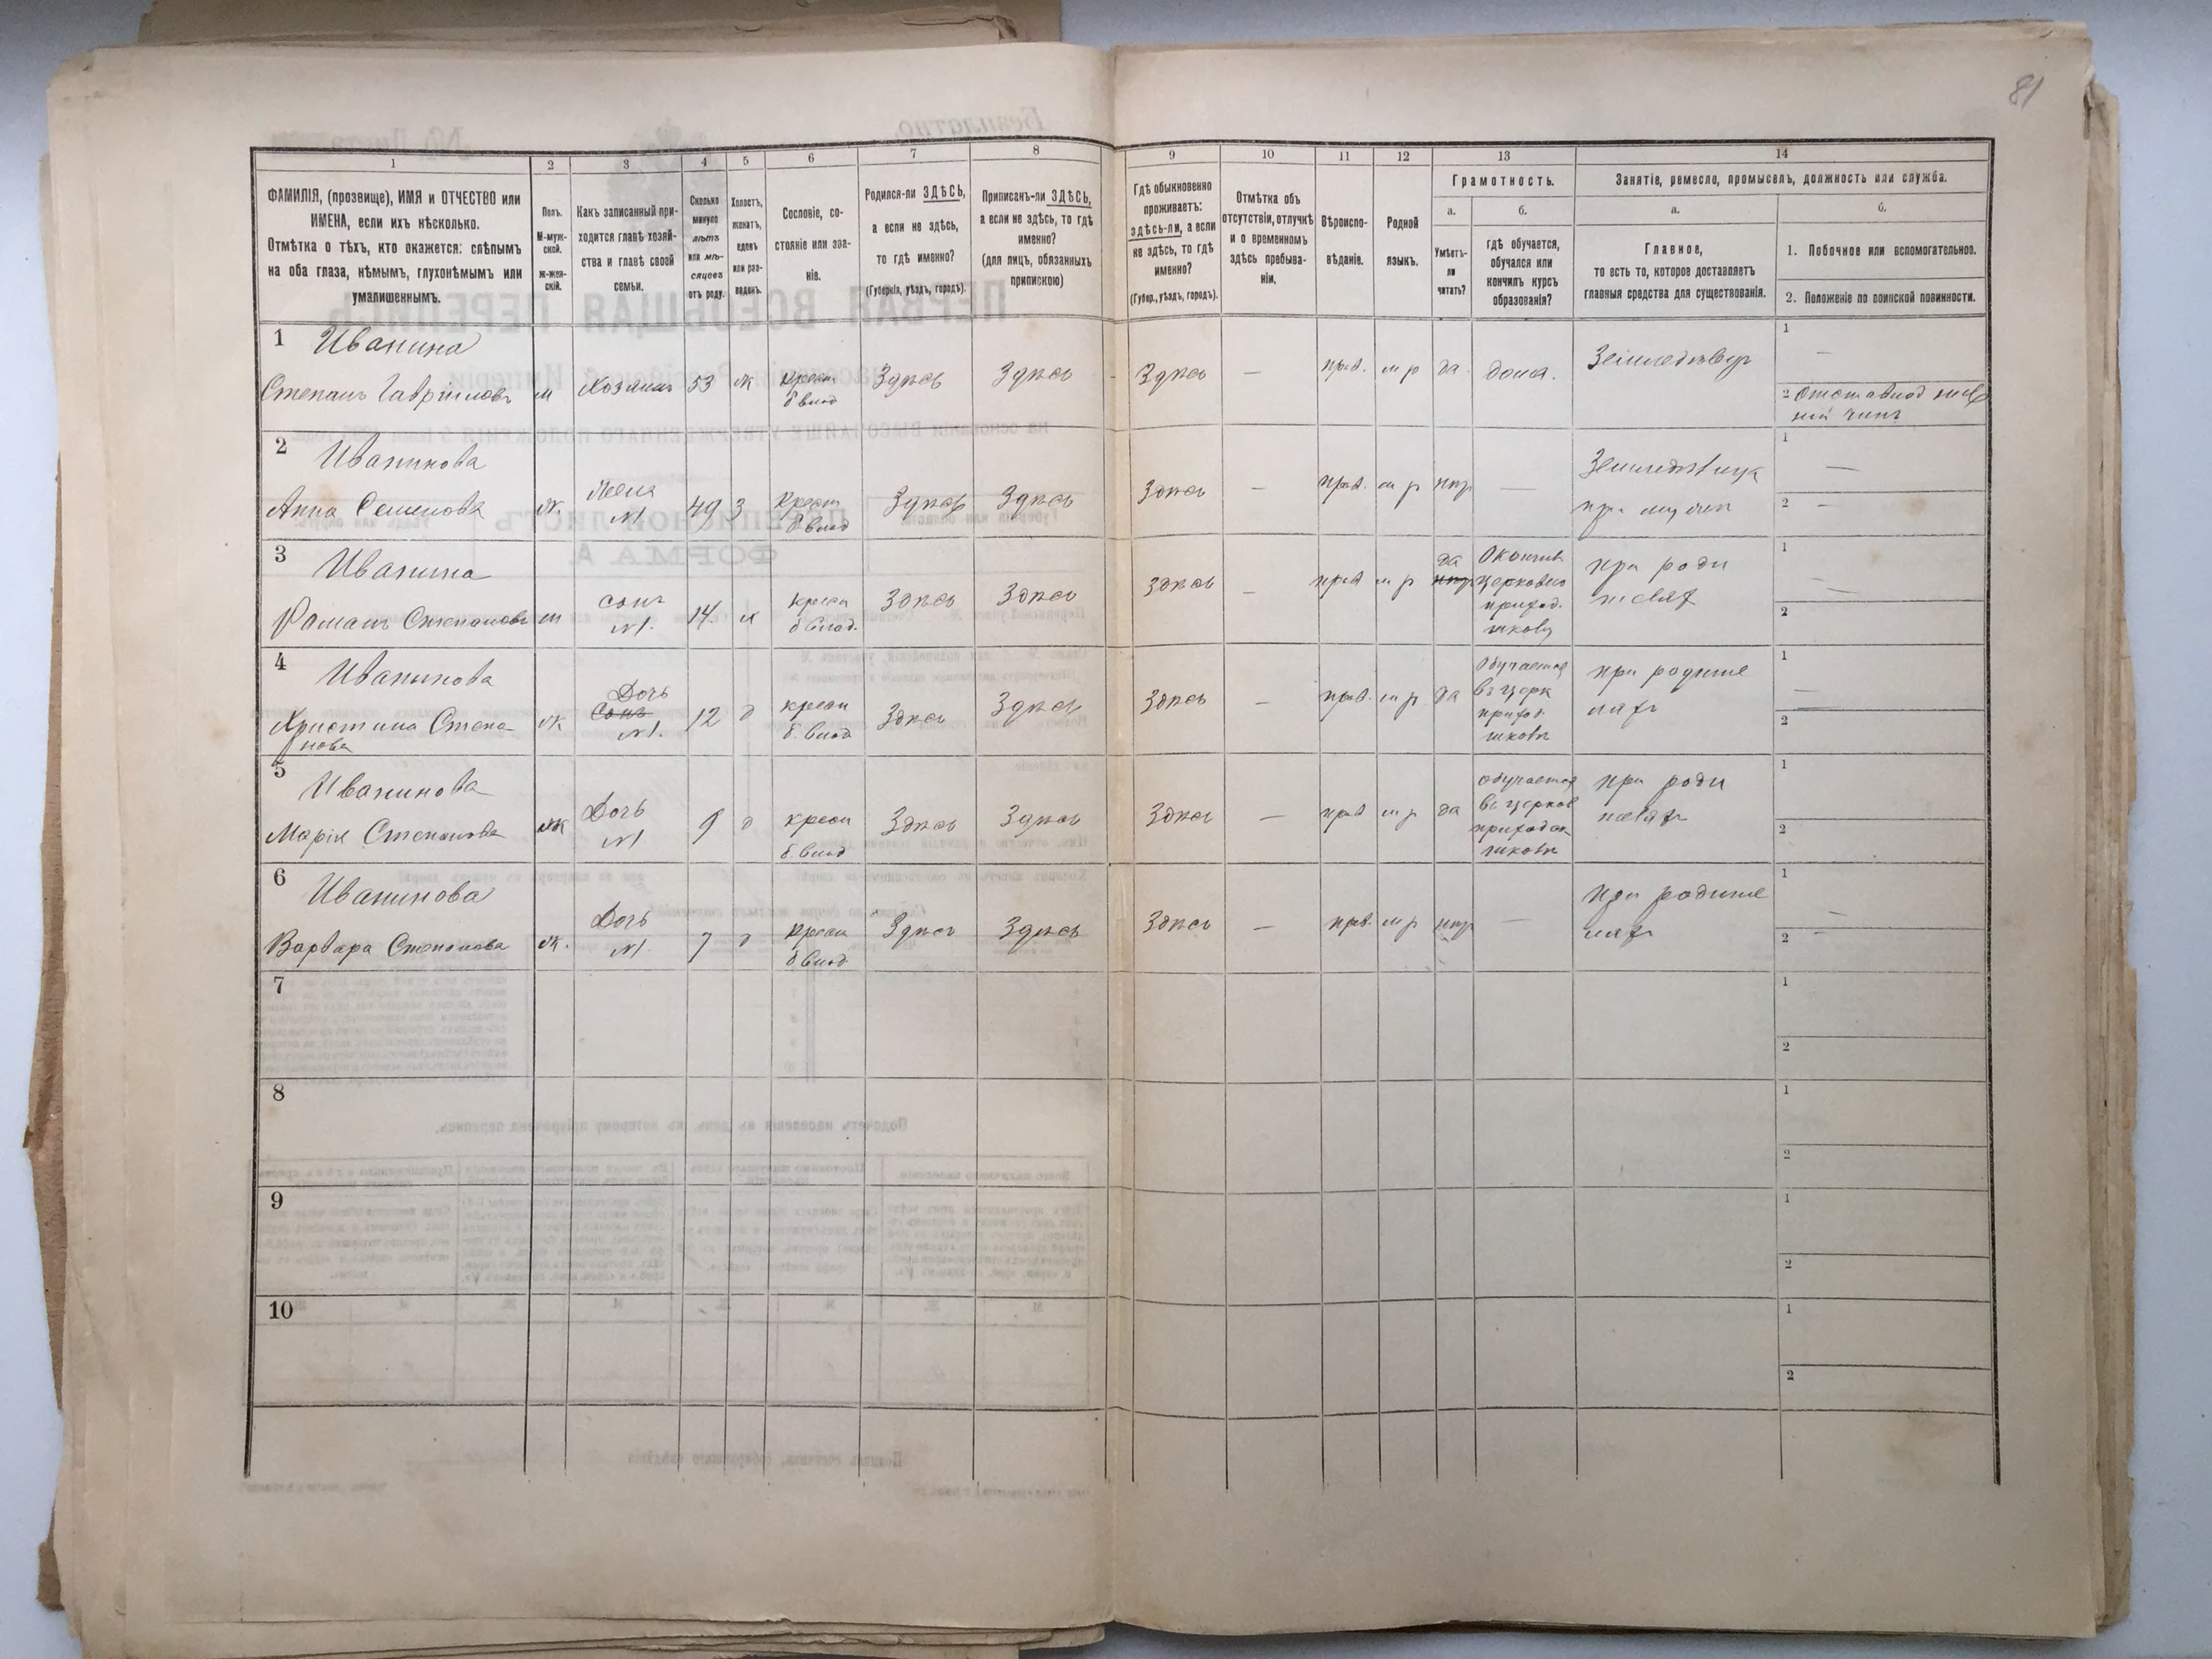 81
1 2 3 4 5 6 7 8 9 10 11 12 13 14
ФАМИЛІЯ, (прозвище), ИМЯ и ОТЧЕСТВО или
ИМЕНА, если ихъ нѣсколько.
Отмѣтка о тѣхъ, кто окажется: слѣпымъ
на оба глаза, нѣмымъ, глухонѣмымъ или
умалишеннымъ.
Полъ.
М-муж-
ской.
Ж-жен-
скій.
Какъ записанный при-
ходится главѣ хозяй-
ства и главѣ своей
семьи.
Сколько
минуло
лѣтъ
или мѣ-
сяцевъ
отъ роду.
Холостъ,
женатъ,
вдовъ
или раз-
веденъ.
Сословіе, со-
стояніе или зва-
ніе.
Родился-ли ЗДѢСЬ,
а если не здѣсь,
то гдѣ именно?
(Губернія, уѣздъ, городъ).
Приписанъ-ли ЗДѢСЬ,
а если не здѣсь, то гдѣ
именно?
(для лицъ, обязанныхъ
припискою)
Гдѣ обыкновенно
проживаетъ:
здѣсь-ли, а если
не здѣсь, то гдѣ
именно?
(Губер., уѣздъ, городъ).
Отмѣтка объ
отсутствіи, отлучкѣ
и о временномъ
здѣсь пребыва-
ніи.
Вѣроиспо-
вѣданіе.
Родной
языкъ.
Грамотность.
а.
Умѣетъ-
ли
читать?
б.
гдѣ обучается,
обучался или
кончилъ курсъ
образованія?
Занятіе, ремесло, промыселъ, должность или служба.
а.
Главное,
то есть то, которое доставляетъ
главныя средства для существованія.
б.
1. Побочное или вспомогательное.
2. Положеніе по воинской повинности.
1 Иванина
Степанъ Гавриловъ
м
Хозяинъ
53
ж
крест
б влад
Здѣсь
Здѣсь
Здѣсь
—
прав.
м р
да
дома.
Земледѣлец
1
—
2 Отставной ниж
ній чинъ
2 Иванинова
Анна Семенова
ж.
Жена
№1
49
З
крест
б влад
Здѣсь
Здѣсь
Здѣсь
—
прав.
м р
нѣт
—
Земледѣлица
при мужѣ
1
—
2 —
3 Иванина
Романъ Степановъ
м
сынъ
№1.
14.
х
крест
б влад.
Здѣсь
Здѣсь
Здѣсь
—
прав
м р
да
нѣт
Окончил
церковно
приход.
школу
при роди
телях
1
—
2
4 Иванинова
Христина Степа
нова
ж
Дочь
Сынъ
№1.
12
д
крест
б. влад
Здѣсь
Здѣсь
Здѣсь
—
прав.
м р
да
Обучается
въ церк
приход
школѣ
при родите
лях
1
—
2
5 Иванинова
Марія Степанова
ж
Дочь
№1
9
д
крест
б. влад
Здѣсь
Здѣсь
Здѣсь
—
прав
м р
да
обучается
въ церков
приходск
школѣ
при роди
телях
1
2
6 Иванинова
Варвара Степанова
ж.
Дочь
№1.
7
д
крест
б влад.
Здѣсь
Здѣсь
Здѣсь
—
прав.
м р
нѣт
—
при родите
лях
1
—
2 —
7
1
2
8
1
2
9
1
2
10
1
2